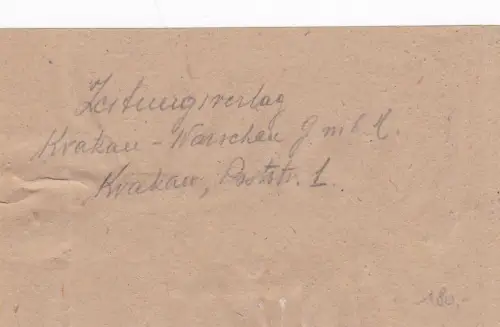 Zeitungsverlag
Krakau - Warschau G.m.b.H.
Krakau, Poststr. 1.
180.-